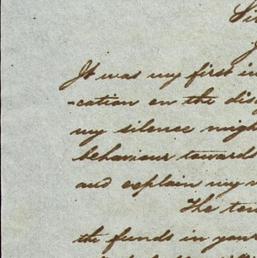 Sir
It was my first in
-cation on the dis
my silence migh
behaviour towards
and explain my
The ten
the funds in your